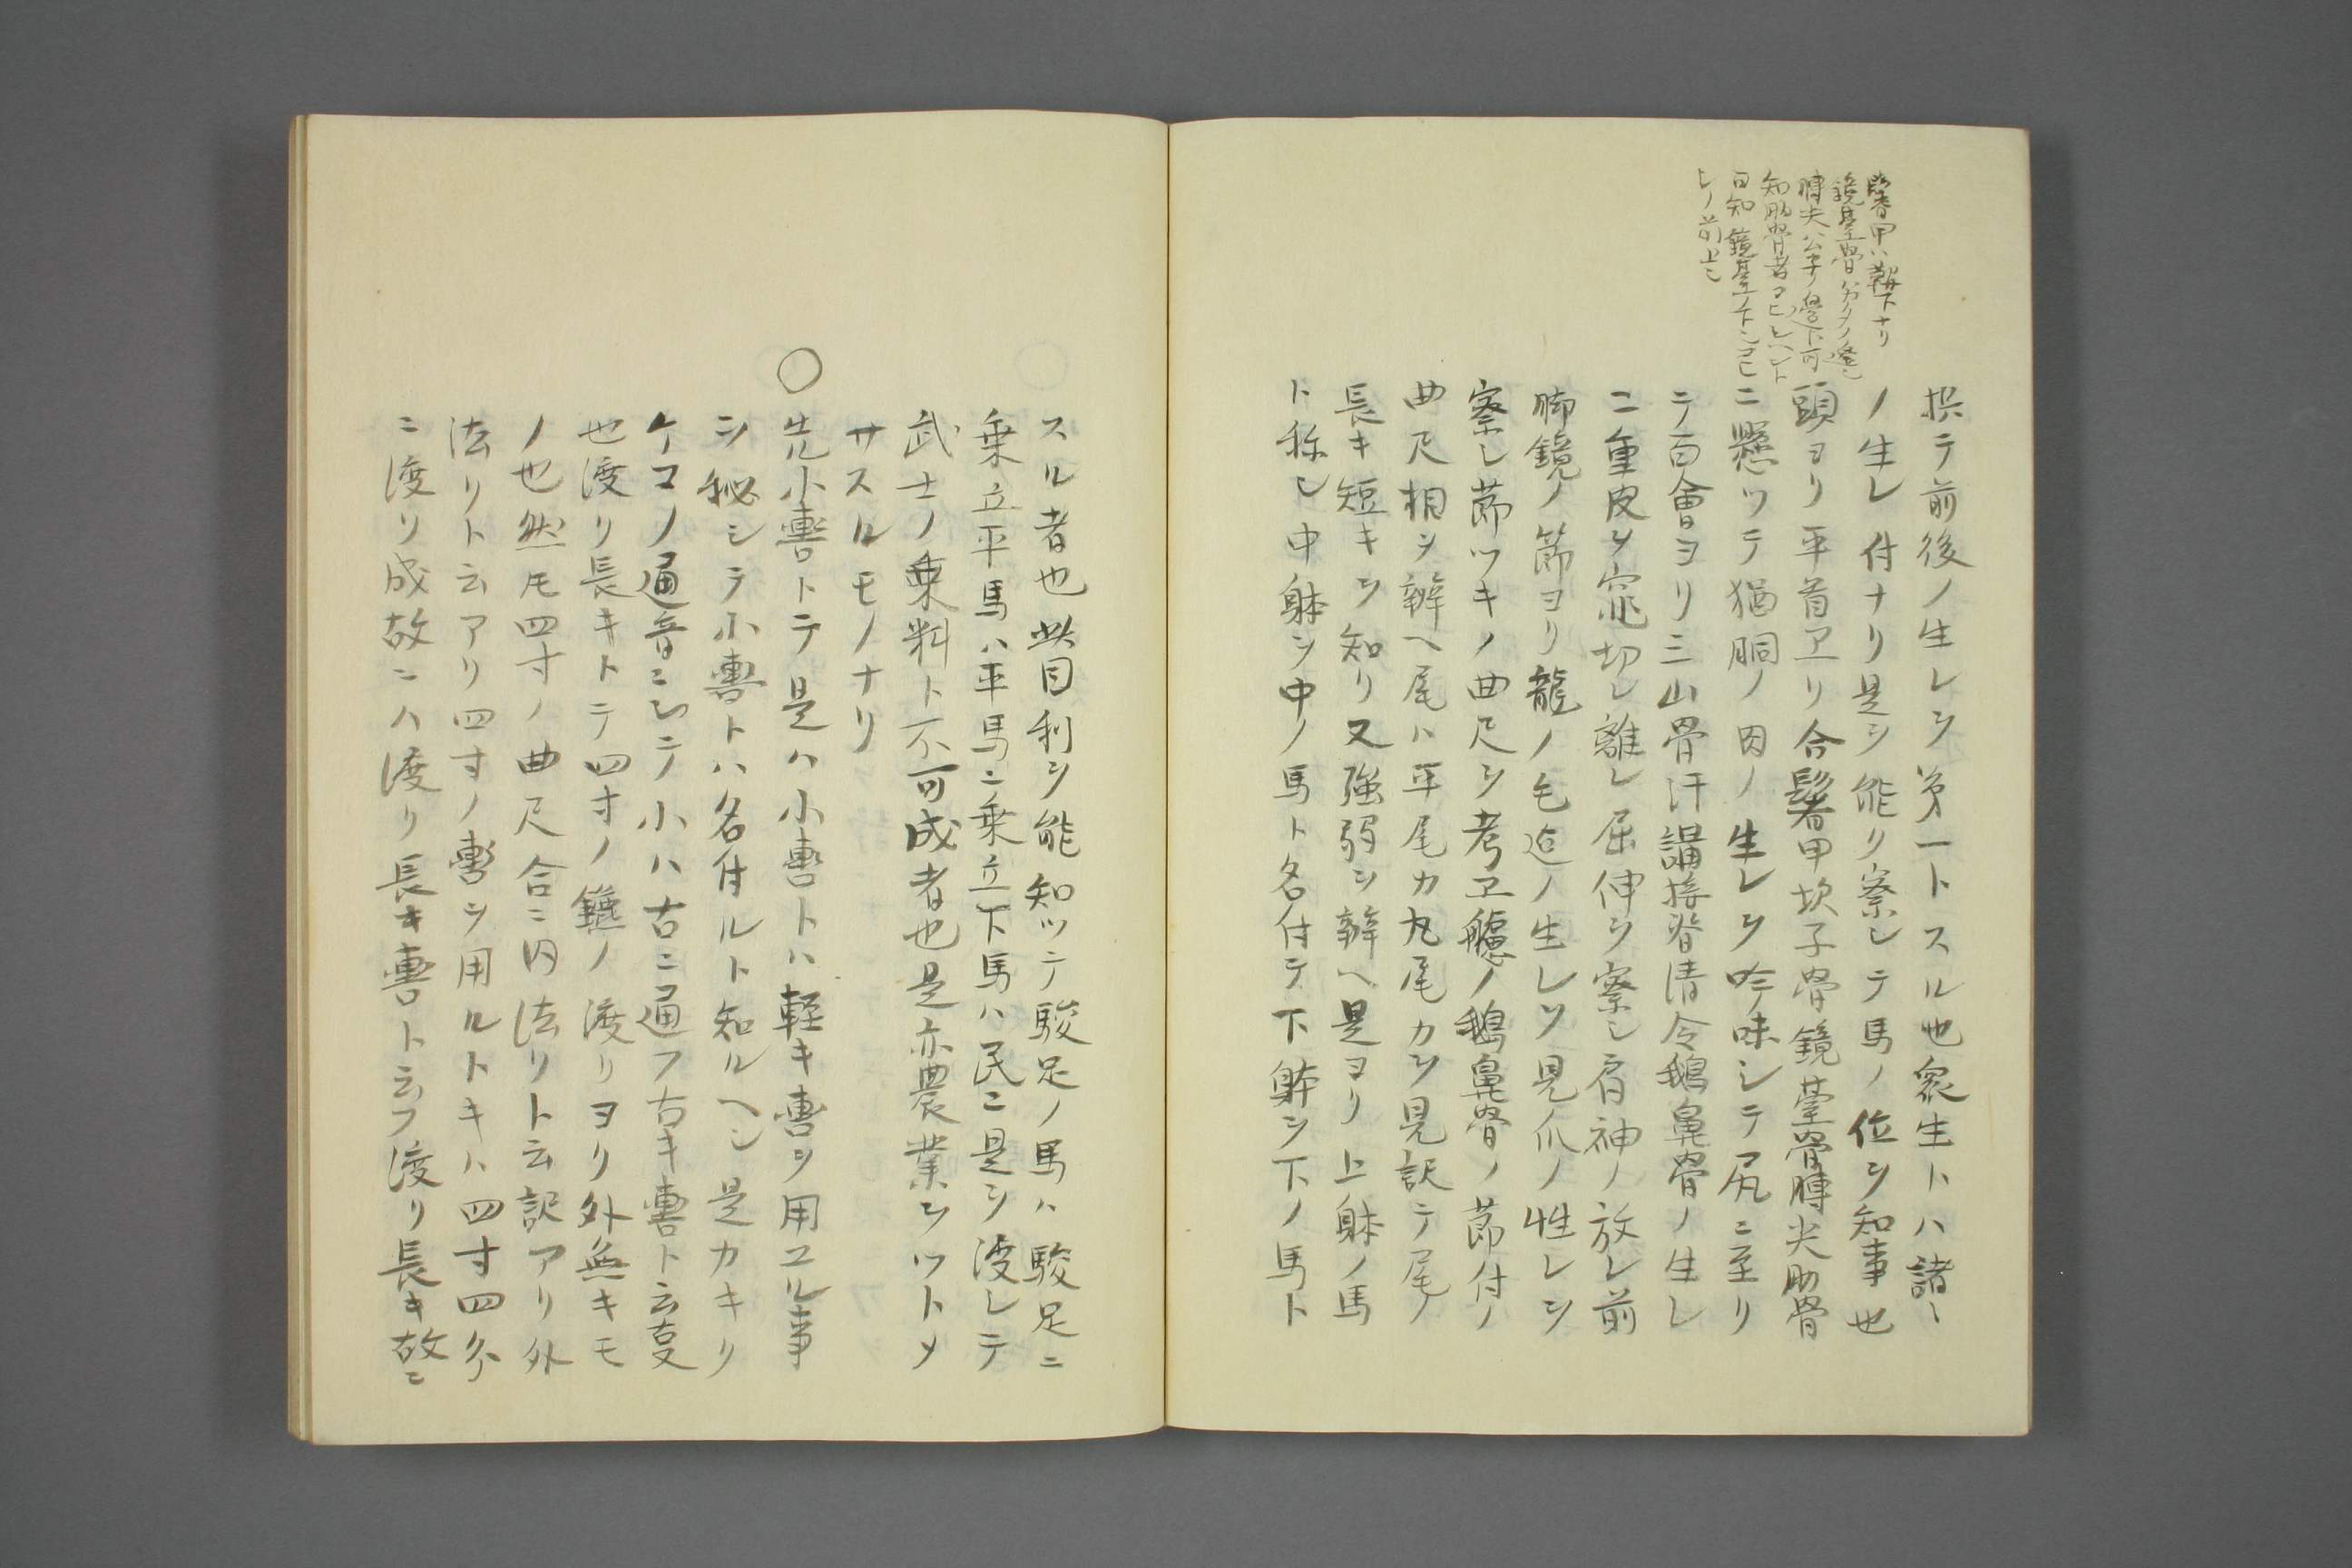 鬐甲ハ鞍下ナリ
鏡䑓骨
膊尖ハ
知肋骨者
曰知鏡䑓ノ下ニ
ノ前上ヒ
択テ前後ノ生レヲ第一トスル也衆生トハ諸〻
ノ生レ付ナリ是ヲ能ク察シテ馬ノ位ヲ知事也
頭ヨリ平首ヱリ合鬐甲坎子骨鏡䑓骨膊尖肋骨
ニ懸ツテ猶胴ノ因ノ生レヲ吟味シテ尻ニ至リ
テ百會ヨリ三山骨汗講接脊清令鵝鼻骨ノ生レ
二重皮ヲ窕切レ離レ屈伸ヲ察シ肩神ノ放レ前
脚鏡ノ節ヨリ龍ノ毛迠ノ生レツ見爪ノ性レヲ
察シ節ツキノ曲尺ヲ考ヱ艫ノ鵝鼻骨ノ節付ノ
曲尺相ヲ辨ヘ尾ハ平尾カ丸尾カヲ見訳テ尾ノ
長キ短キヲ知リ又強弱ヲ辨ヘ是ヨリ上躰ノ馬
ト称シ中躰ヲ中ノ馬ト名付テ下躰ヲ下ノ馬ト
スル者也此目利ヲ能知ツテ駿足ノ馬ハ駿足ニ
乗立平馬ハ平馬ニ乗立下馬ハ民ニ是ヲ渡レテ
武士ノ乗料ト不可成者也是亦農業ヲツトメ
サスルモノナリ
○先小轡トテ是ハ小轡トハ軽キ轡ヲ用ユル事
ヲ秘シテ小轡トハ名付ルト知ルヘシ是カキリ
ケコノ通音ニシテ小ハ古ニ通フ古キ轡ト云叓
也渡リ長キトテ四寸ノ鑣ノ渡リヨリ外無キモ
ノ也然𪜈四寸ノ曲尺合ニ内法リト云訳アリ外
法リト云アリ四寸ノ轡ヲ用ルトキハ四寸四分
ニ渡リ成故ニハ渡リ長キ轡ト云フ渡リ長キ故ニ